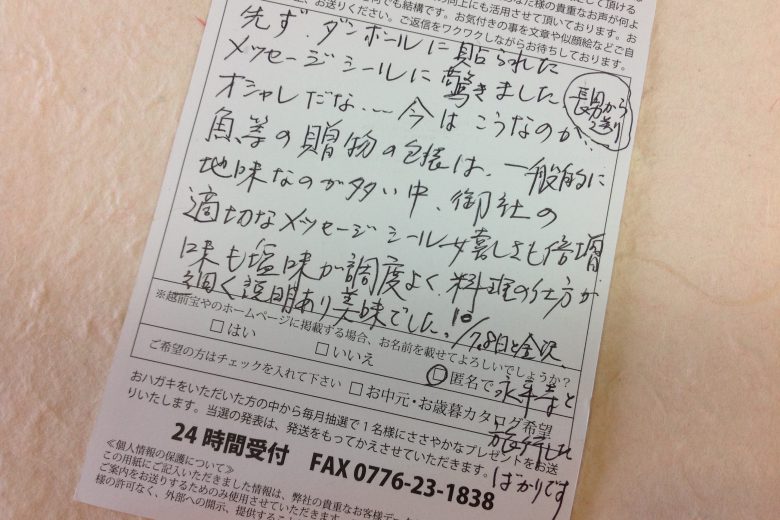 の向上にも活用させて頂いております。お
何よりも結構です。お気付きの事を文章や似顔絵などご自
、お送りください。ご返信をワクワクしながらお待ちしております。
先ず、ダンボールに貼られた
メッセージシールに驚きました
長男から
送り
オシャレだな...今はこうなのか...
魚等の贈物の包装は、一般的に
地味なのが多い中、御社の
適切なメッセージシール 嬉しさも倍増
味も塩味が調度よく、料理の仕方が
細く説明あり美味でした。
10/7,8日と金沢、
永平寺と
旅行した
ばかりです
※越前宝やのホームページに掲載する場合、お名前を載せてよろしいでしょうか?
□はい □いいえ □匿名で
ご希望の方はチェックを入れて下さい □お中元・お歳暮カタログ希望
おハガキをいただいた方の中から毎月抽選で1名様にささやかなプレゼントをお送
りいたします。当選の発表は、発送をもってかえさせていただきます。
24時間受付 FAX 0776-23-1838
≪個人情報の保護について≫
この用紙にご記入いただきました情報は、弊社の貴重なお客様デー
ご案内をお送りするためのみ使用させていただきます。
様の許可なく、外部への開示、提供すること